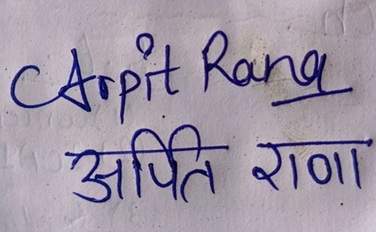 Arpit Rana
अर्पित राणा